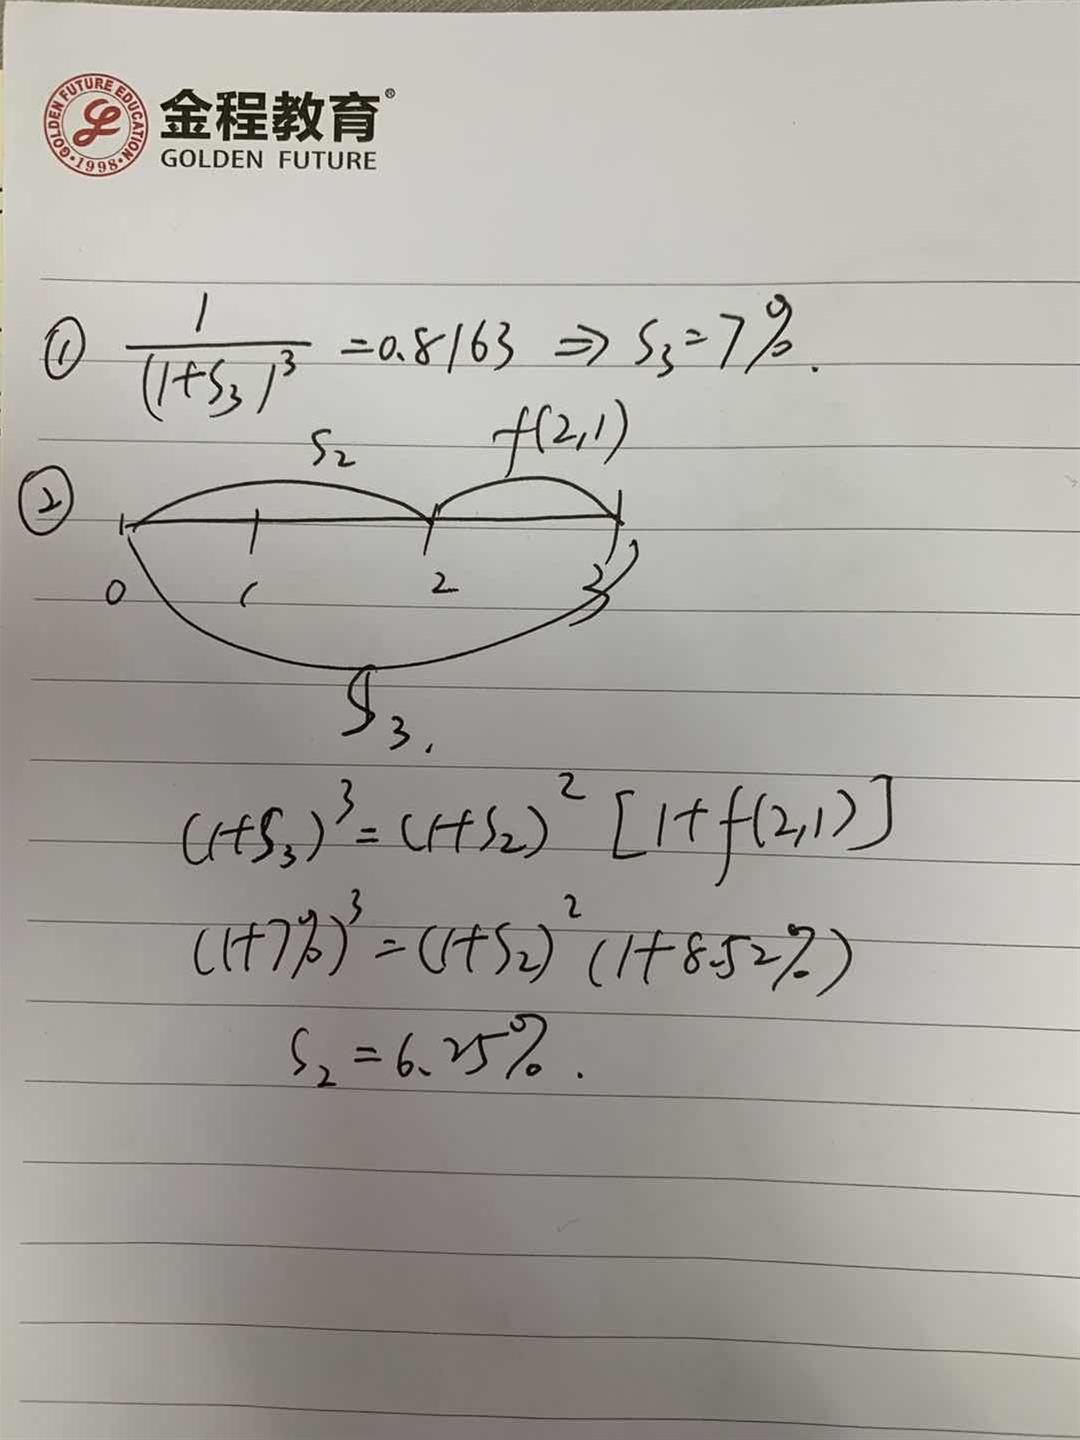 GOLDEN FUTURE EDUCATION
·1998·
金程教育®
GOLDEN FUTURE
① 1/(1+S₃)³ = 0.8163 ⇒ S₃ = 7%.
S₂ f(2,1)
②
0 1 2 3
S₃.
(1+S₃)³ = (1+S₂)² [1+f(2,1)]
(1+7%)³ = (1+S₂)² (1+8.52%)
S₂ = 6.25%.